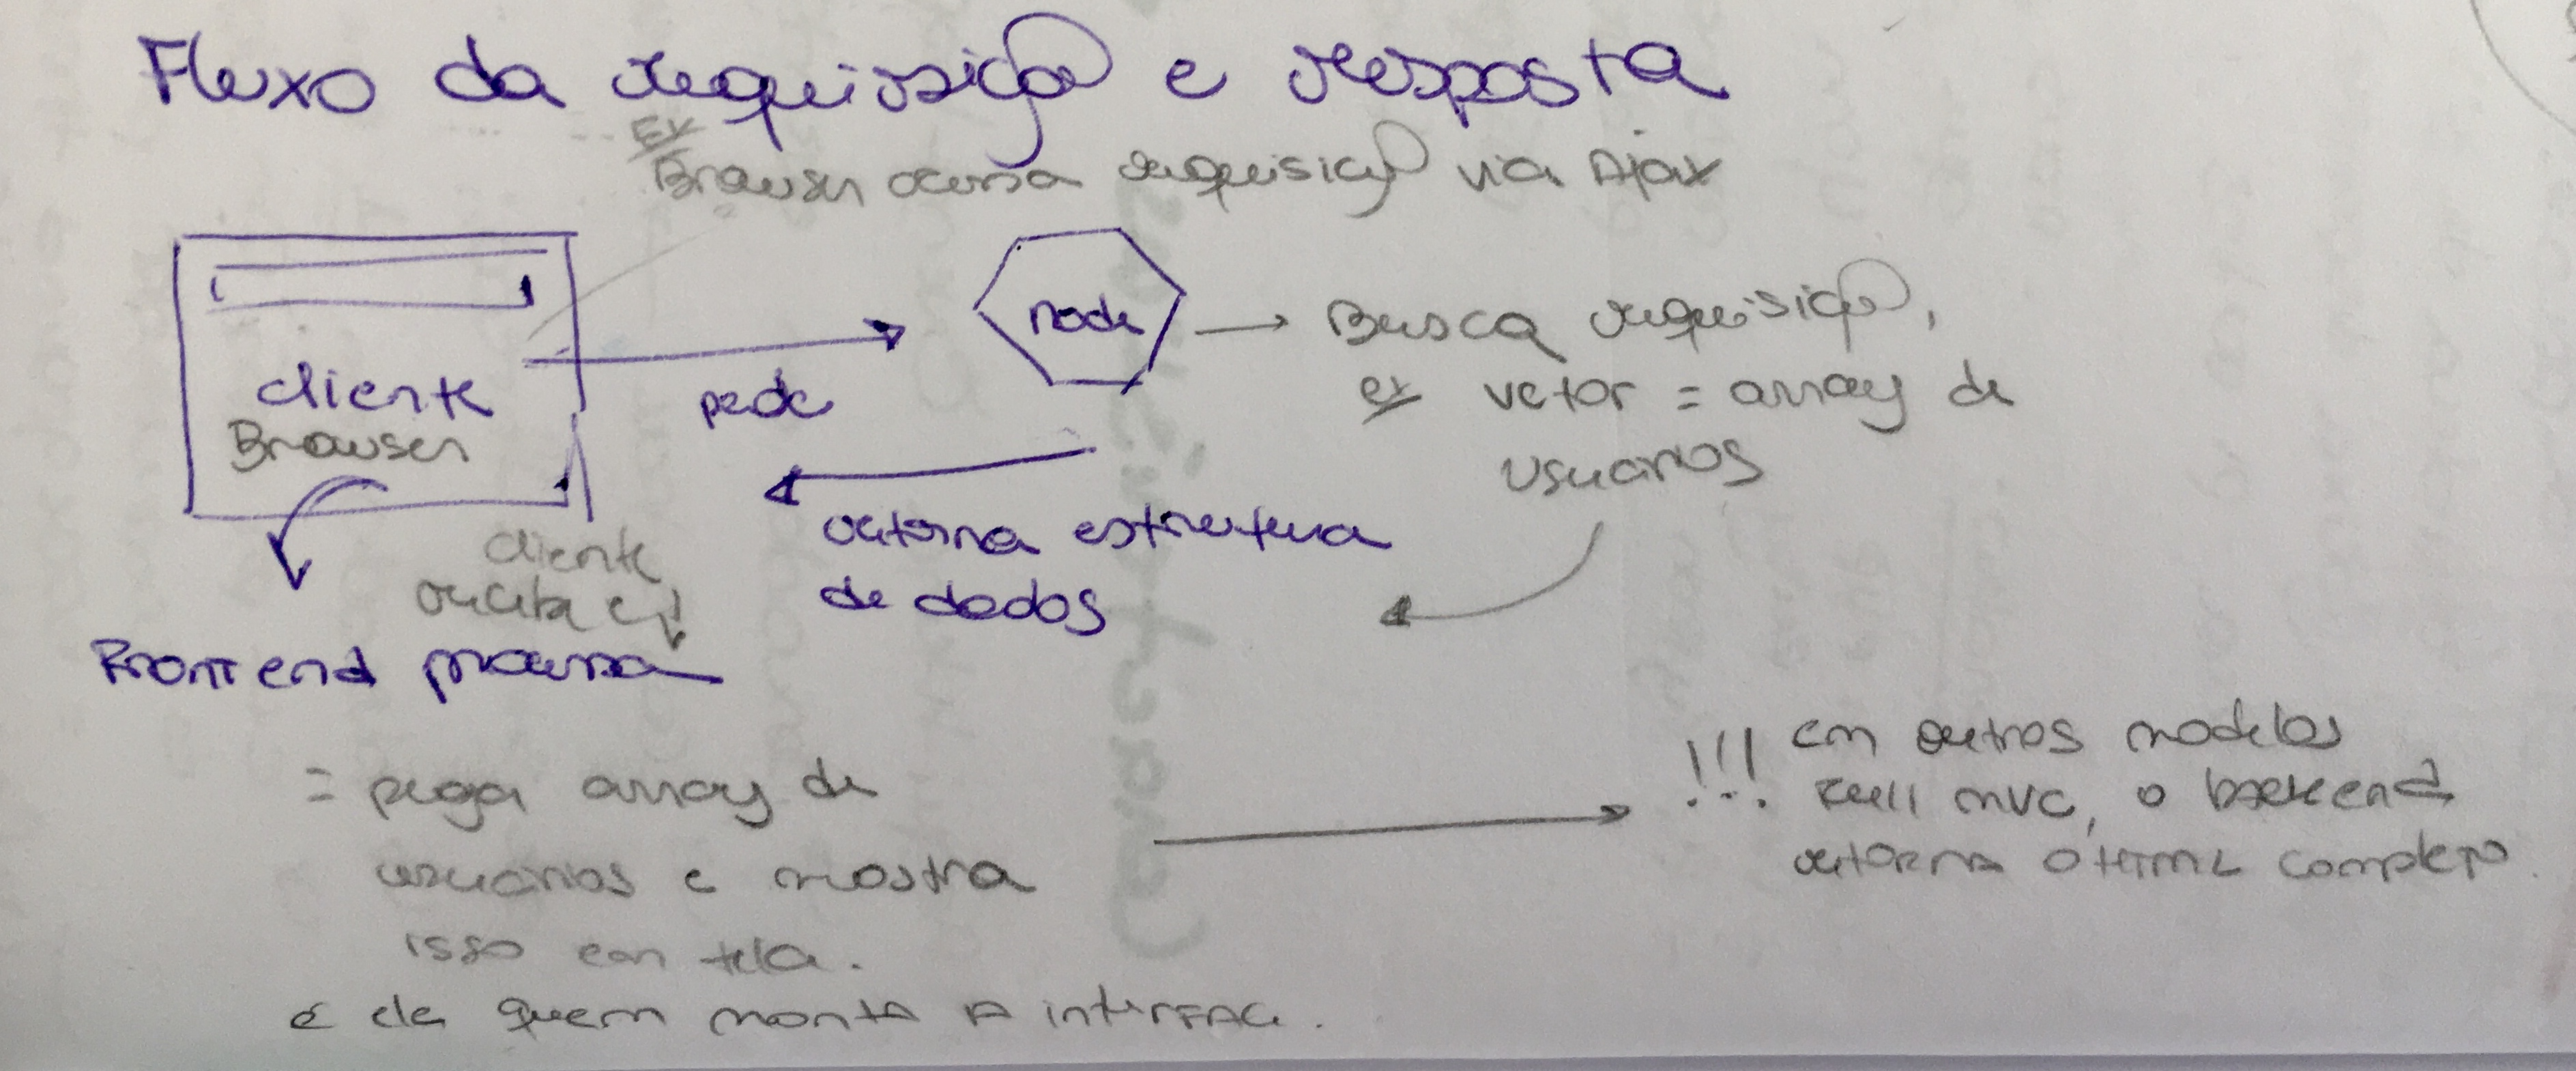 Fluxo da requisição e resposta
Ex
Browser acessa requisição via Ajax
cliente
Browser
pede
node
Busca requisição,
ex vetor = array de
usuários
retorna estrutura
de dados
cliente
recebe e
Frontend processa
= pega array de
usuários e mostra
isso em tela.
é ele quem monta a interface.
!!! em outros modelos
Full MVC, o backend
retorna o HTML completo.